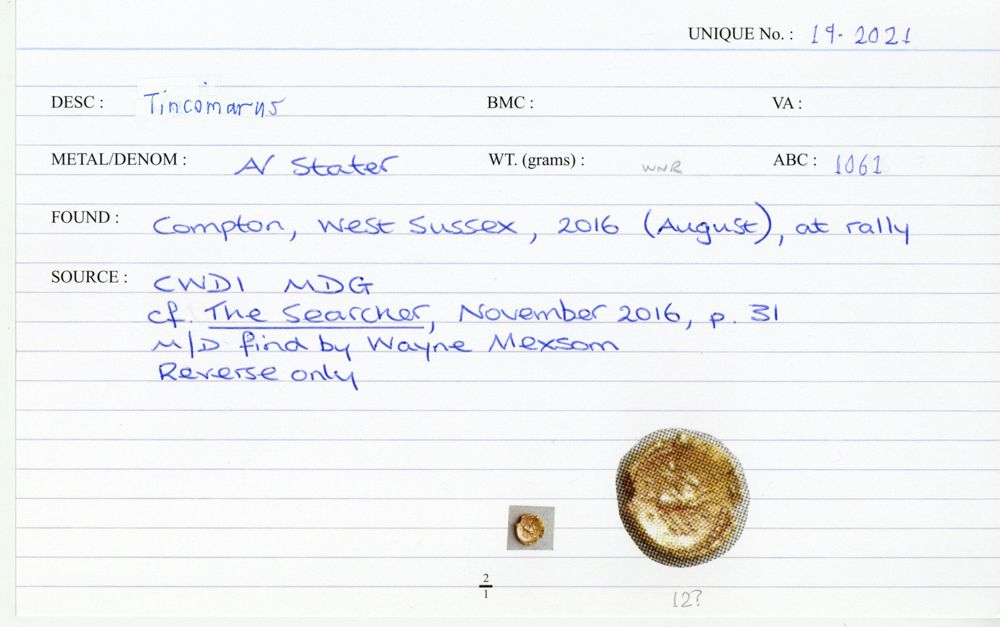 UNIQUE No. : 19-2021
DESC : Tincomarus BMC : VA :
METAL/DENOM : AV Stater WT. (grams) : WNR ABC : 1061
FOUND : Compton, West Sussex, 2016 (August), at rally
SOURCE : CWDI MDG
cf. The Searcher, November 2016, p. 31
M/D find by Wayne Mexsom
Reverse only
2
1
12?